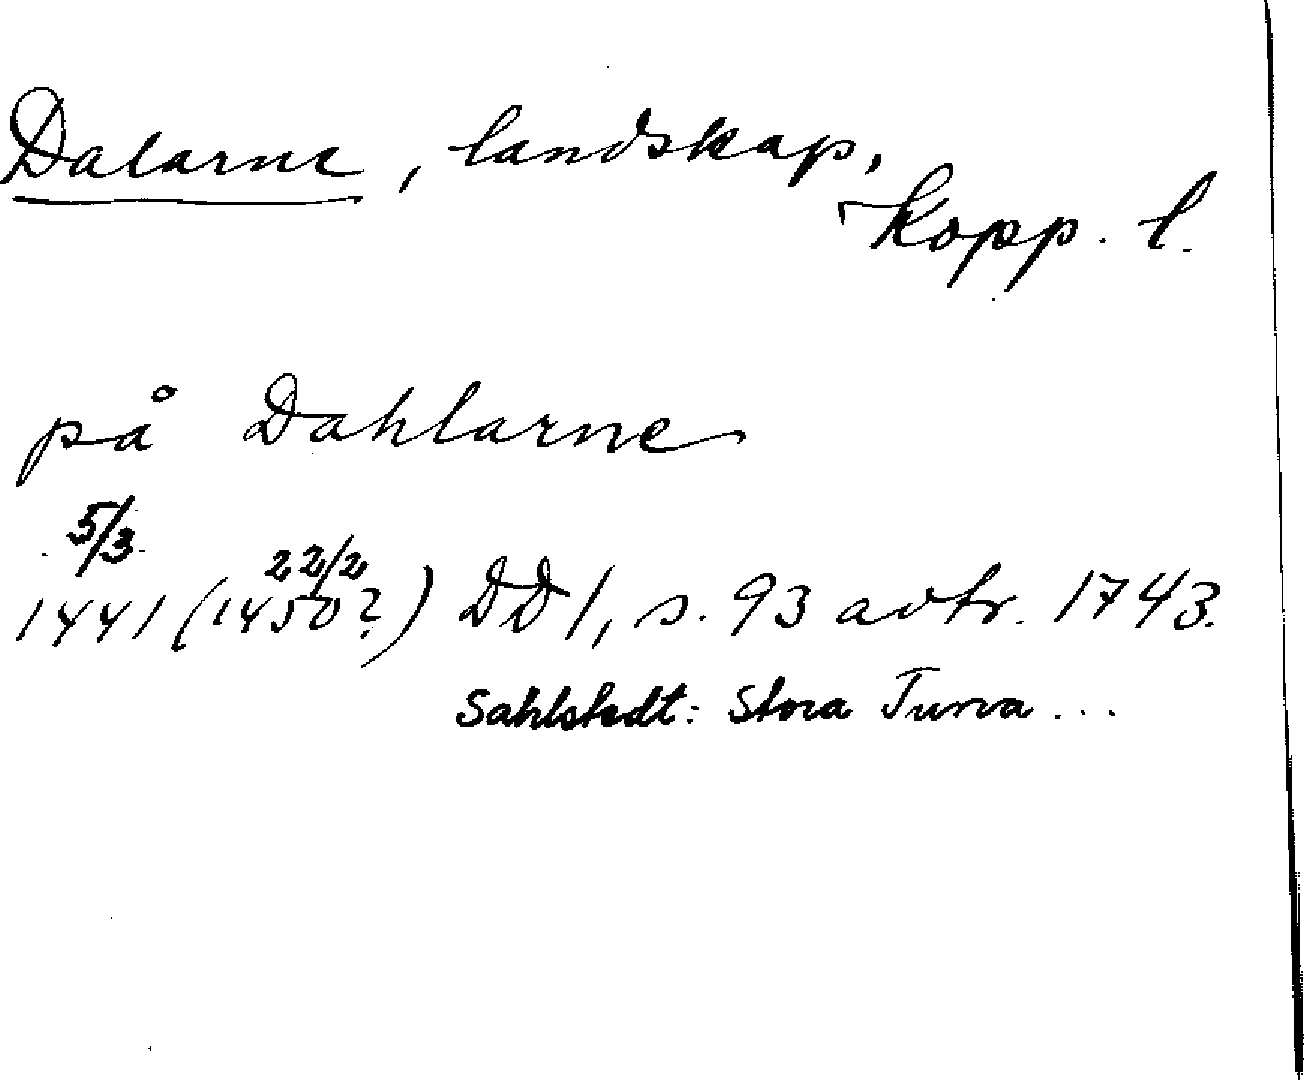 Dalarne, landskap,
Kopp. l.
på Dahlarne
5/3 22/2
1441 (1450?) DD 1, s. 93 avtr. 1743.
Sahlstedt: Stora Turva ...